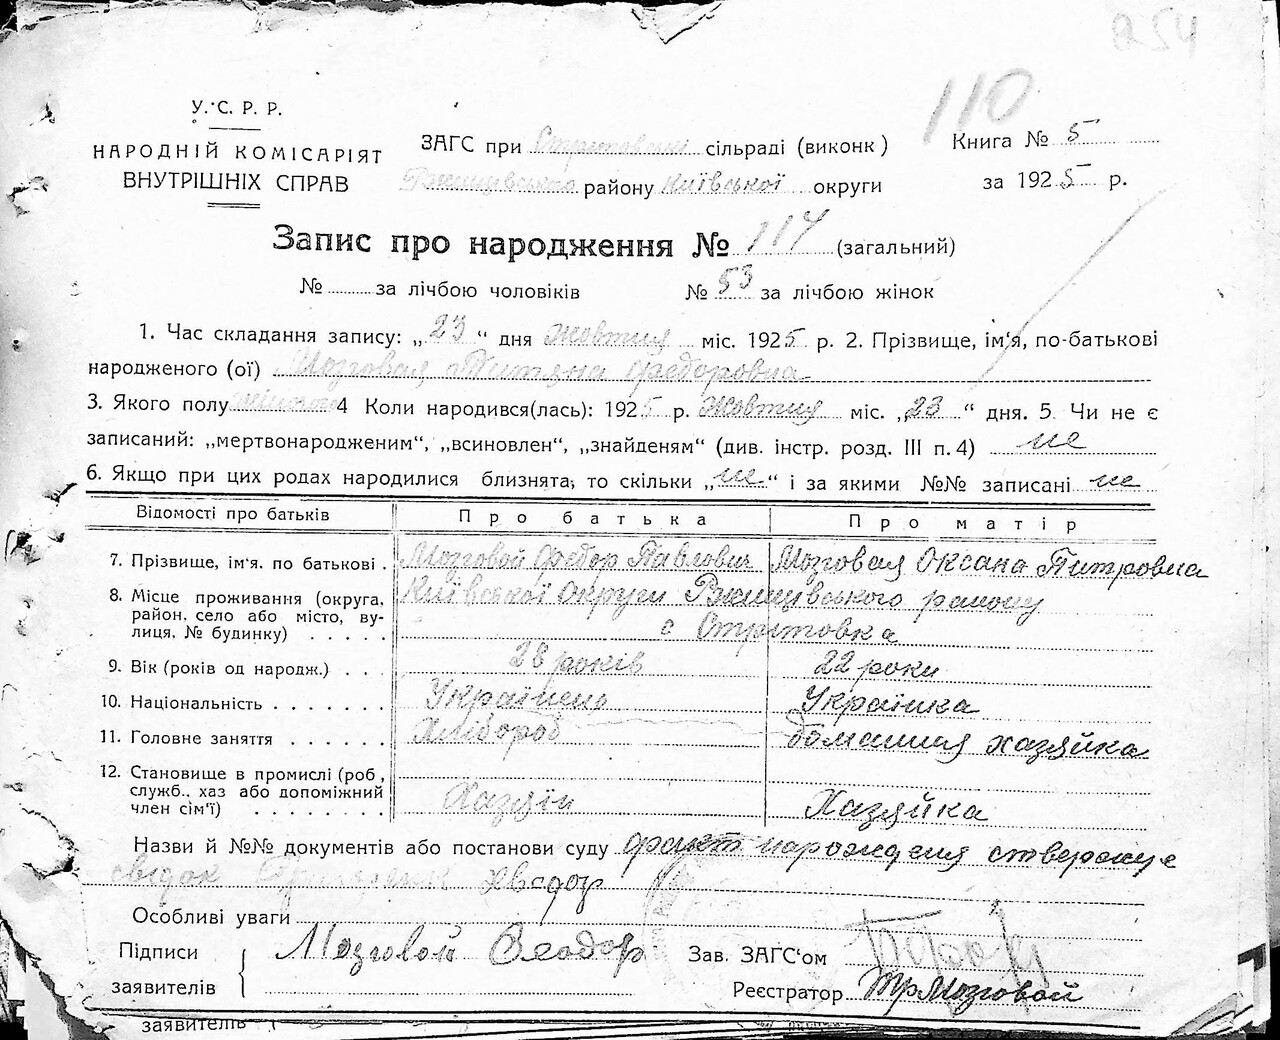 254
110
У.С.Р.Р.
НАРОДНІЙ КОМІСАРІЯТ
ВНУТРІШНІХ СПРАВ
ЗАГС при Стрітовській сільраді (виконк)
Ржищівського району Київської округи
Книга № 5
за 1925 р.
Запис про народження № 114 (загальний)
№ за лічбою чоловіків № 53 за лічбою жінок
1. Час складання запису: „23“ дня Жовтня міс. 1925 р. 2. Прізвище, ім'я, по-батькові
народженого (ої) Мозговая Титяна Федоровна
3. Якого полу жіночого 4 Коли народився(лась): 1925 р. Жовтня міс. „23“ дня. 5. Чи не є
записаний: „мертвонародженим“, „всиновлен“, „знайденям“ (див. інстр. розд. III п. 4) не
6. Якщо при цих родах народилися близнята, то скільки „не“ і за якими №№ записані не
Відомості про батьків Про батька Про матір
7. Прізвище, ім'я. по батькові . Мозговой Федор Павлович Мозговая Оксана Питровна
8. Місце проживання (округа, Київської Округи Ржищивського району
район, село або місто, ву-
лиця, № будинку) . . . . . с Стрітовка
9. Вік (років од народж.) . . . 28 років 22 роки
10. Національність . . . . . . . Українець Українка
11. Головне заняття . . . . . . Хлібороб домашняя хазяйка
12. Становище в промислі (роб,
служб., хаз або допоміжний
член сім'ї) . . . . . . . . Хазяїн Хазяйка
Назви й №№ документів або постанови суду факт нарождения стверджує
свідок Хведор
Особливі уваги
Підписи Мозговой Феодор Зав. ЗАГС'ом
заявителів Реєстратор Мозговой
заявителів